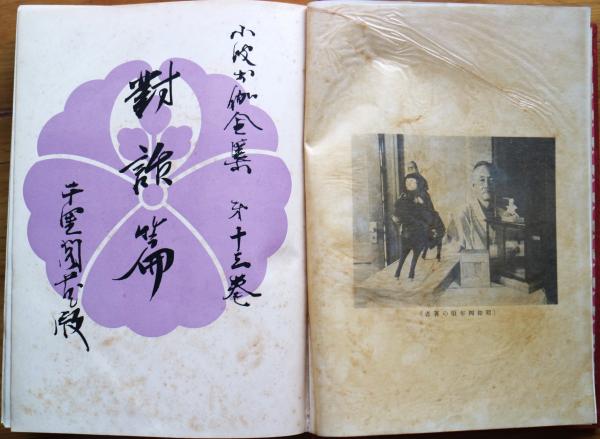 小波お伽全集 第十三巻
對話篇
千里閣蔵版
（昭和四年頃の著者）